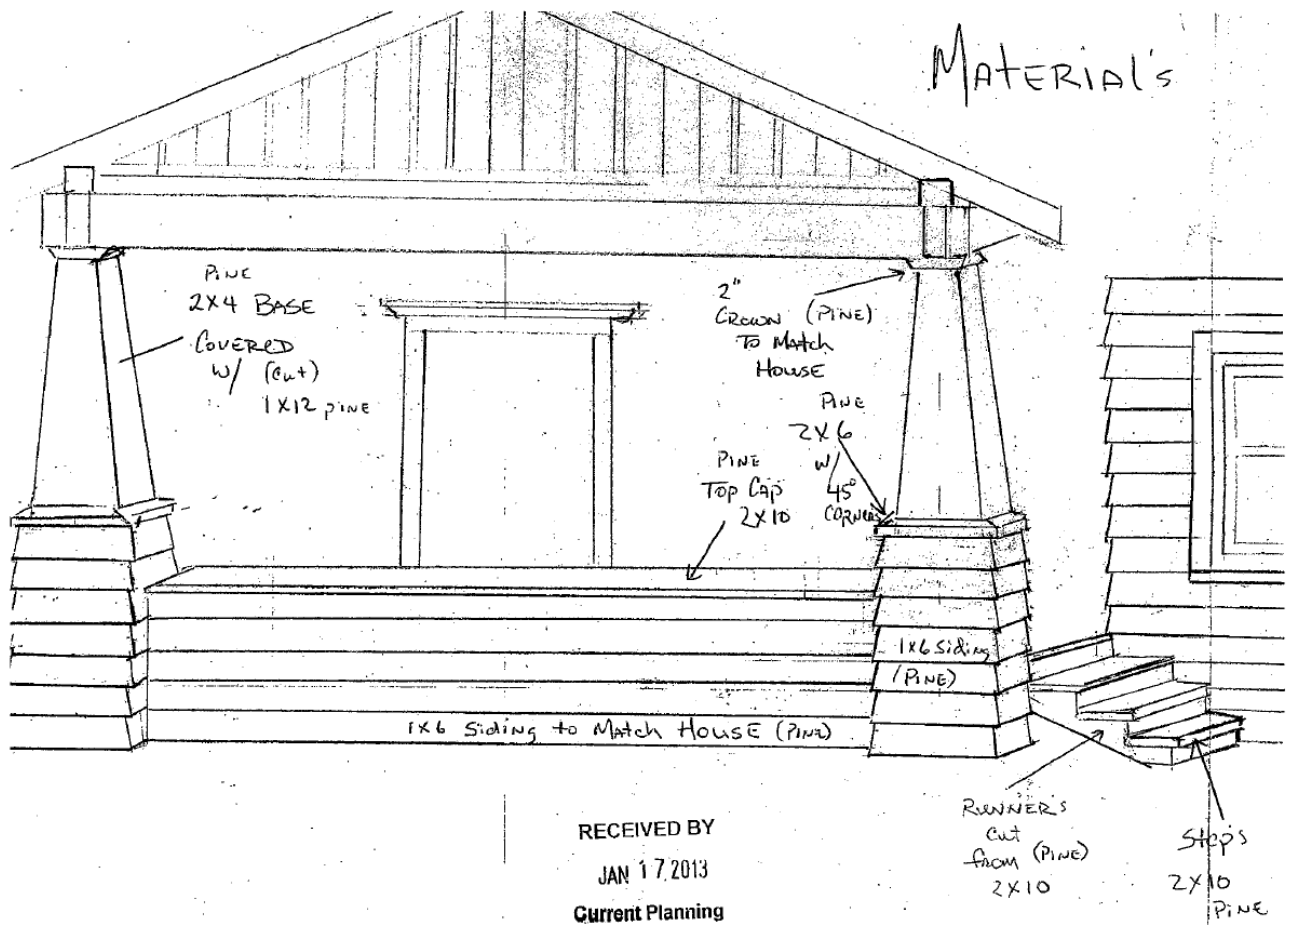 MATERIAL's
PINE
2X4 BASE
COVERED
W/ (Cut)
1X12 PINE
2"
CROWN (PINE)
TO MAtch
HOUSE
PINE
2X6
W/
45°
CORNERS
PINE
TOP CAP
2X10
1X6 Siding
(PINE)
1X6 Siding to MAtch HOUSE (PINE)
RUNNER's
Cut
from (PINE)
2X10
Steps
2X10
PINE
RECEIVED BY
JAN 17 2013
Current Planning